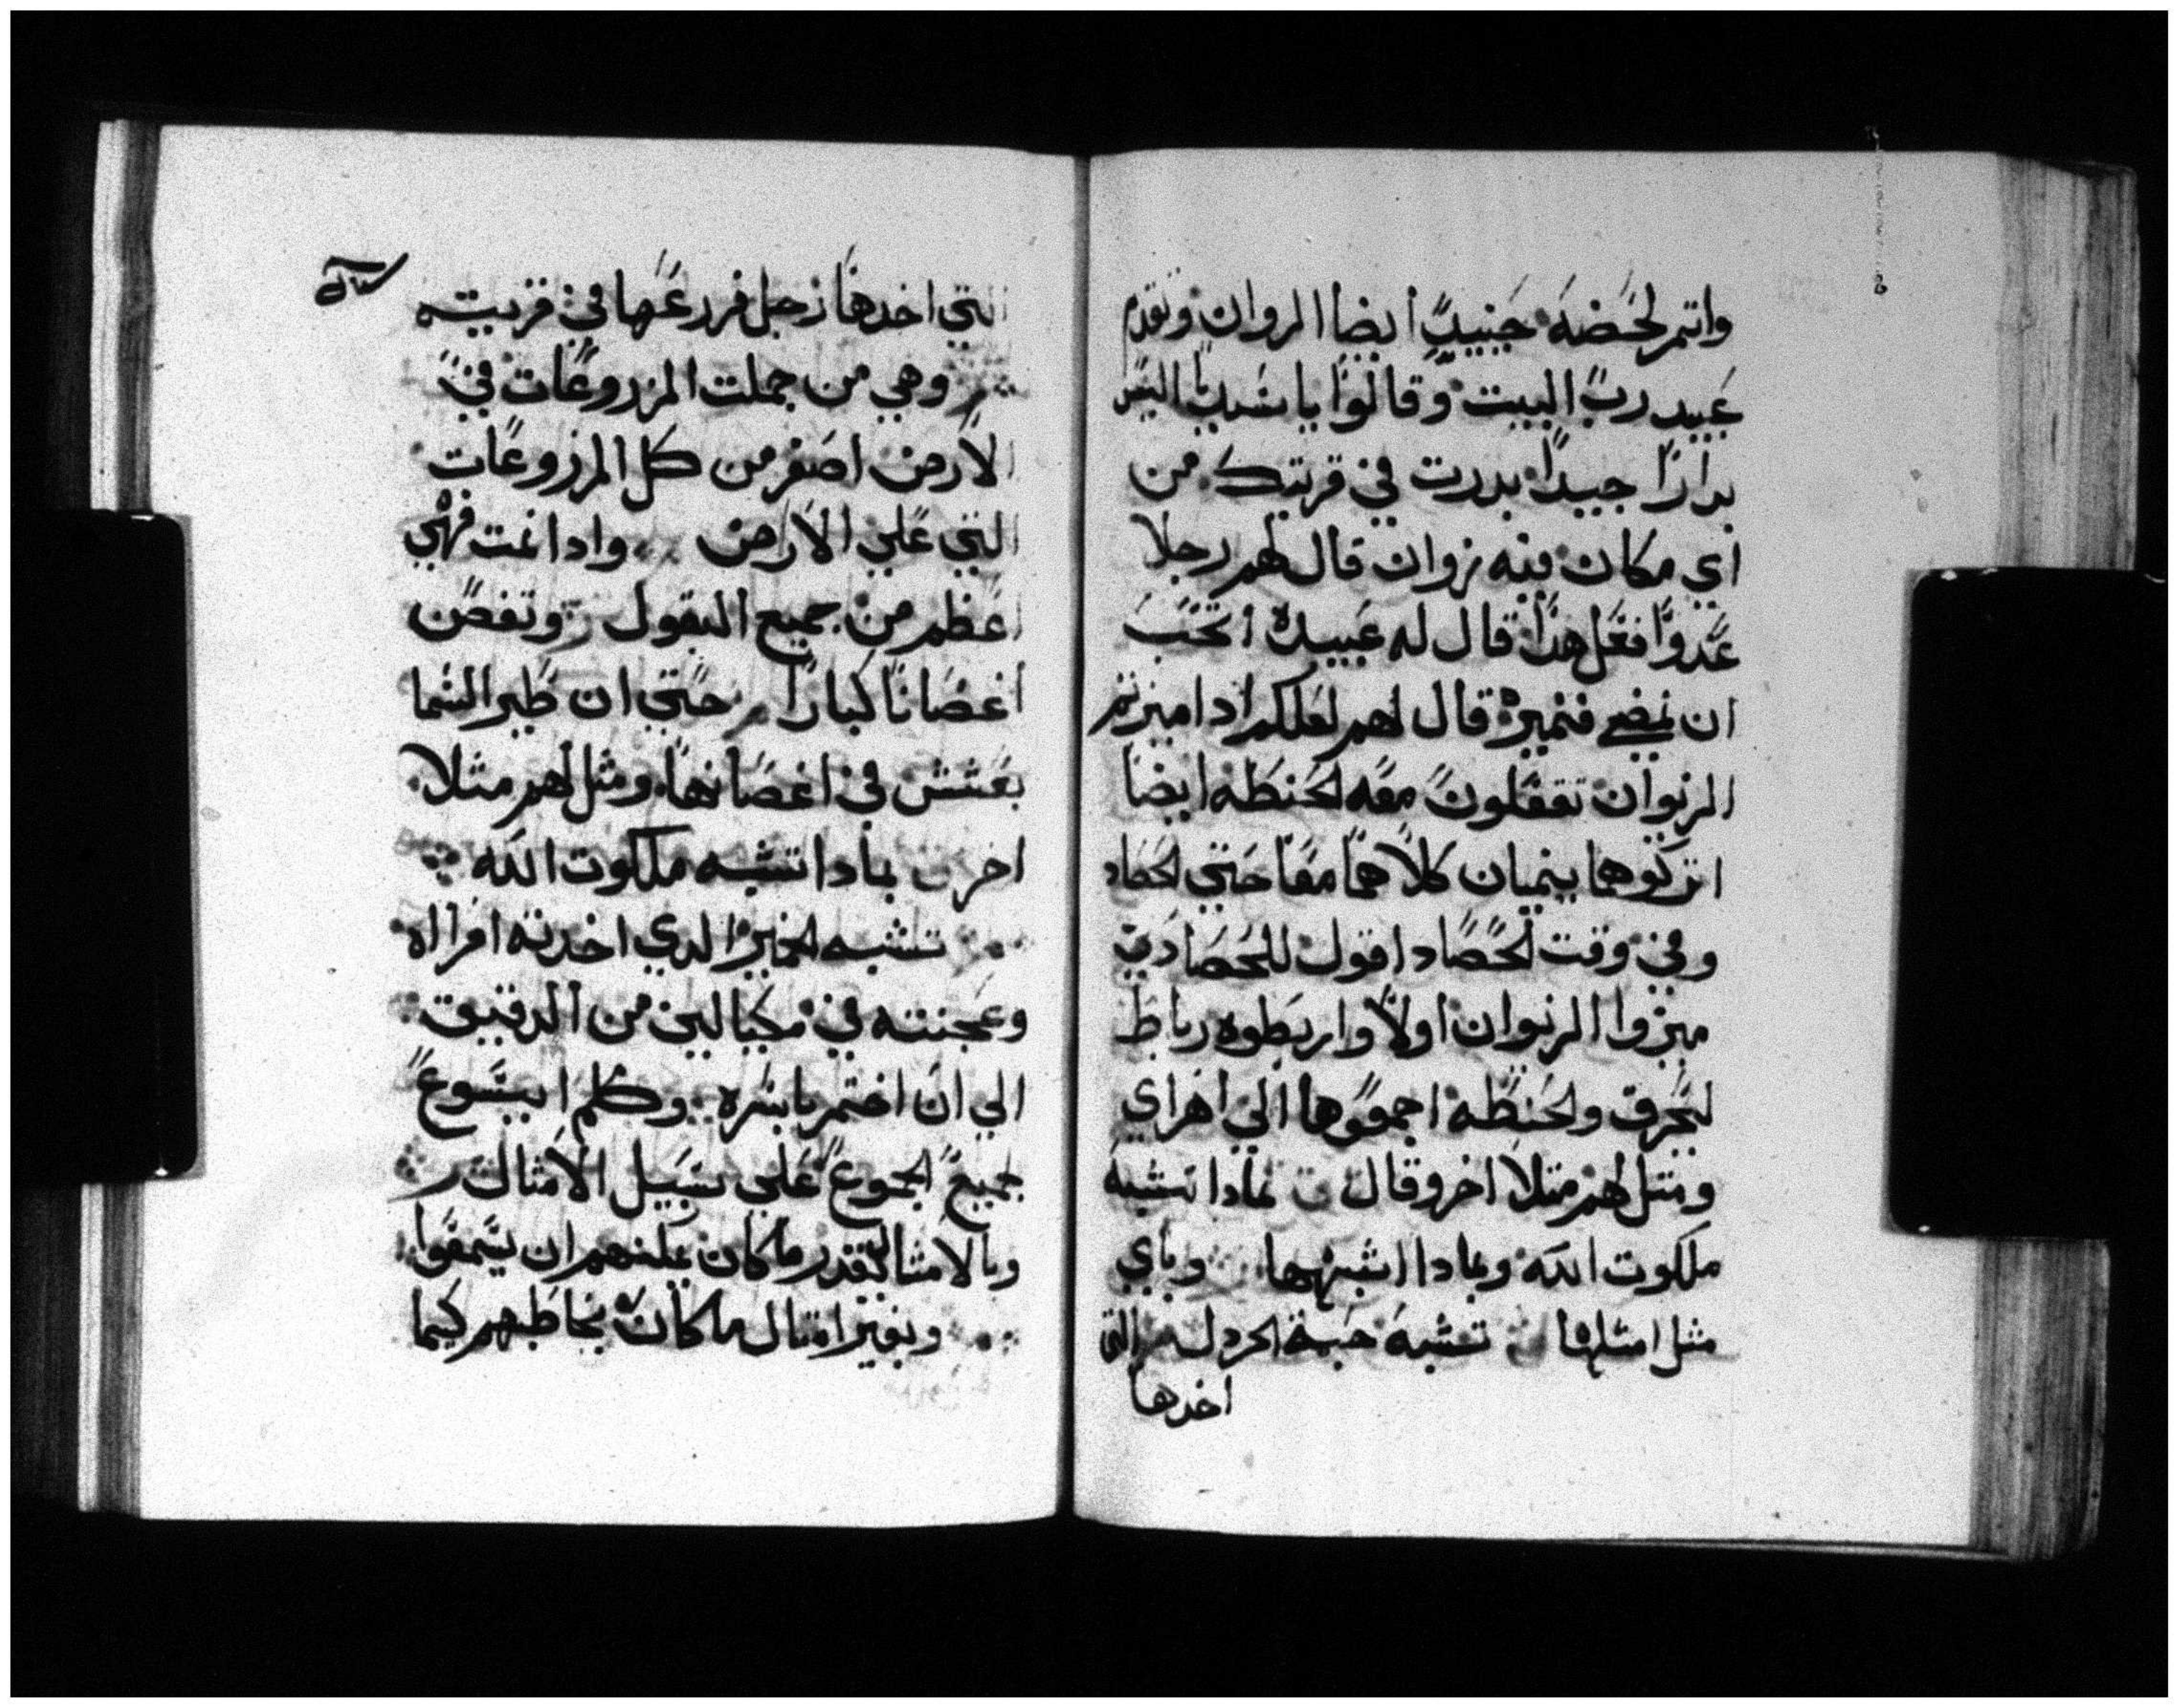 واتمر لحضه جنيبدٍ ايضا الزوان وتقدم
عبيد رب البيت وقالوا يا سيدنا اليس
بدارًا جيدًا بدرت في قريتك من
اي مكان فيه زوان قال لهم رجلا
عدوًا فعل هدا قال له عبيده اتحب
ان نمضي فنميزه قال لهم لعلكم ادا ميزتم
الزوان تقعلون معه الحنطه ايضا
اتركوهما ينميان كلاهما معا حتي الحصاد
وفي وقت الحصاد اقول للحصادين
ميزوا الزوان اولًا واربطوه رباط
ليحرق والحنطه اجمعوها الي اهراي
ومتل لهم متلا اخر وقال بمادا تشبه
ملكوت الله وبمادا اشبهها وباي
مثل امثلها تشبه حبة الخردل التي
اخدها
التي اخدها رجل فزرعها في قريته
وهي من جملت المزروعات في
الارض اصغر من كل المزروعات
التي علي الارض وادا نمت فهي
اعظم من جميع البقول وتغصن
اغصانا كبارا حتي ان طير السما
يعشش في اغصانها ومثل لهم مثلا
اخر بمادا تشبه ملكوت الله
تشبه الخمير الدي اخدته امراه
وعجنته في مكيالين من الدقيق
الي ان اختمر باسره وكلم ايسوع
جميع الجموع علي سبيل الامثال
وبالامثال بقدر ما كان يمكنهم ان يسمعوا
وبغير امتال ما كان يخاطبهم كيما